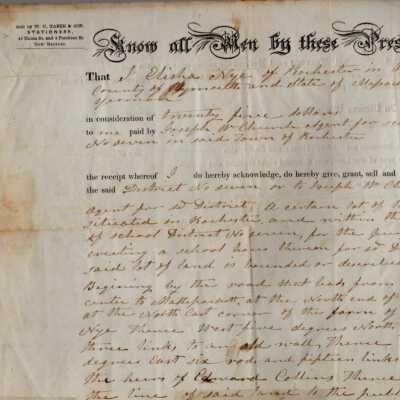 Sold by W. C. TABER & SON,
STATIONERS,
New Bedford.
Know all Men by these Pres
That I Elisha Nye of Rochester in
County of Plymouth and State of Massa
Yeoman
in consideration of twenty five dollars
to me paid by Joseph W Church agent for
No seven in said Town of Rochester
the receipt whereof I do hereby acknowledge, do hereby give, grant, sell and
the said District No seven or to Joseph W Ch
Agent for sd District, A certain lot of
situated in Rochester, and within the
of school District No seven, for the pur
erecting a school house thereon for sd D
said lot of land is bounded or described
Begining by the road that leads from
center to Mattapoisett, at the North end of
at the North East corner of the farm of
Nye Thence West five degrees North
three links to an old wall, Thence
degrees East six rods and fifteen links
the heirs of Edward Collins Thence
the line of said land to the publ